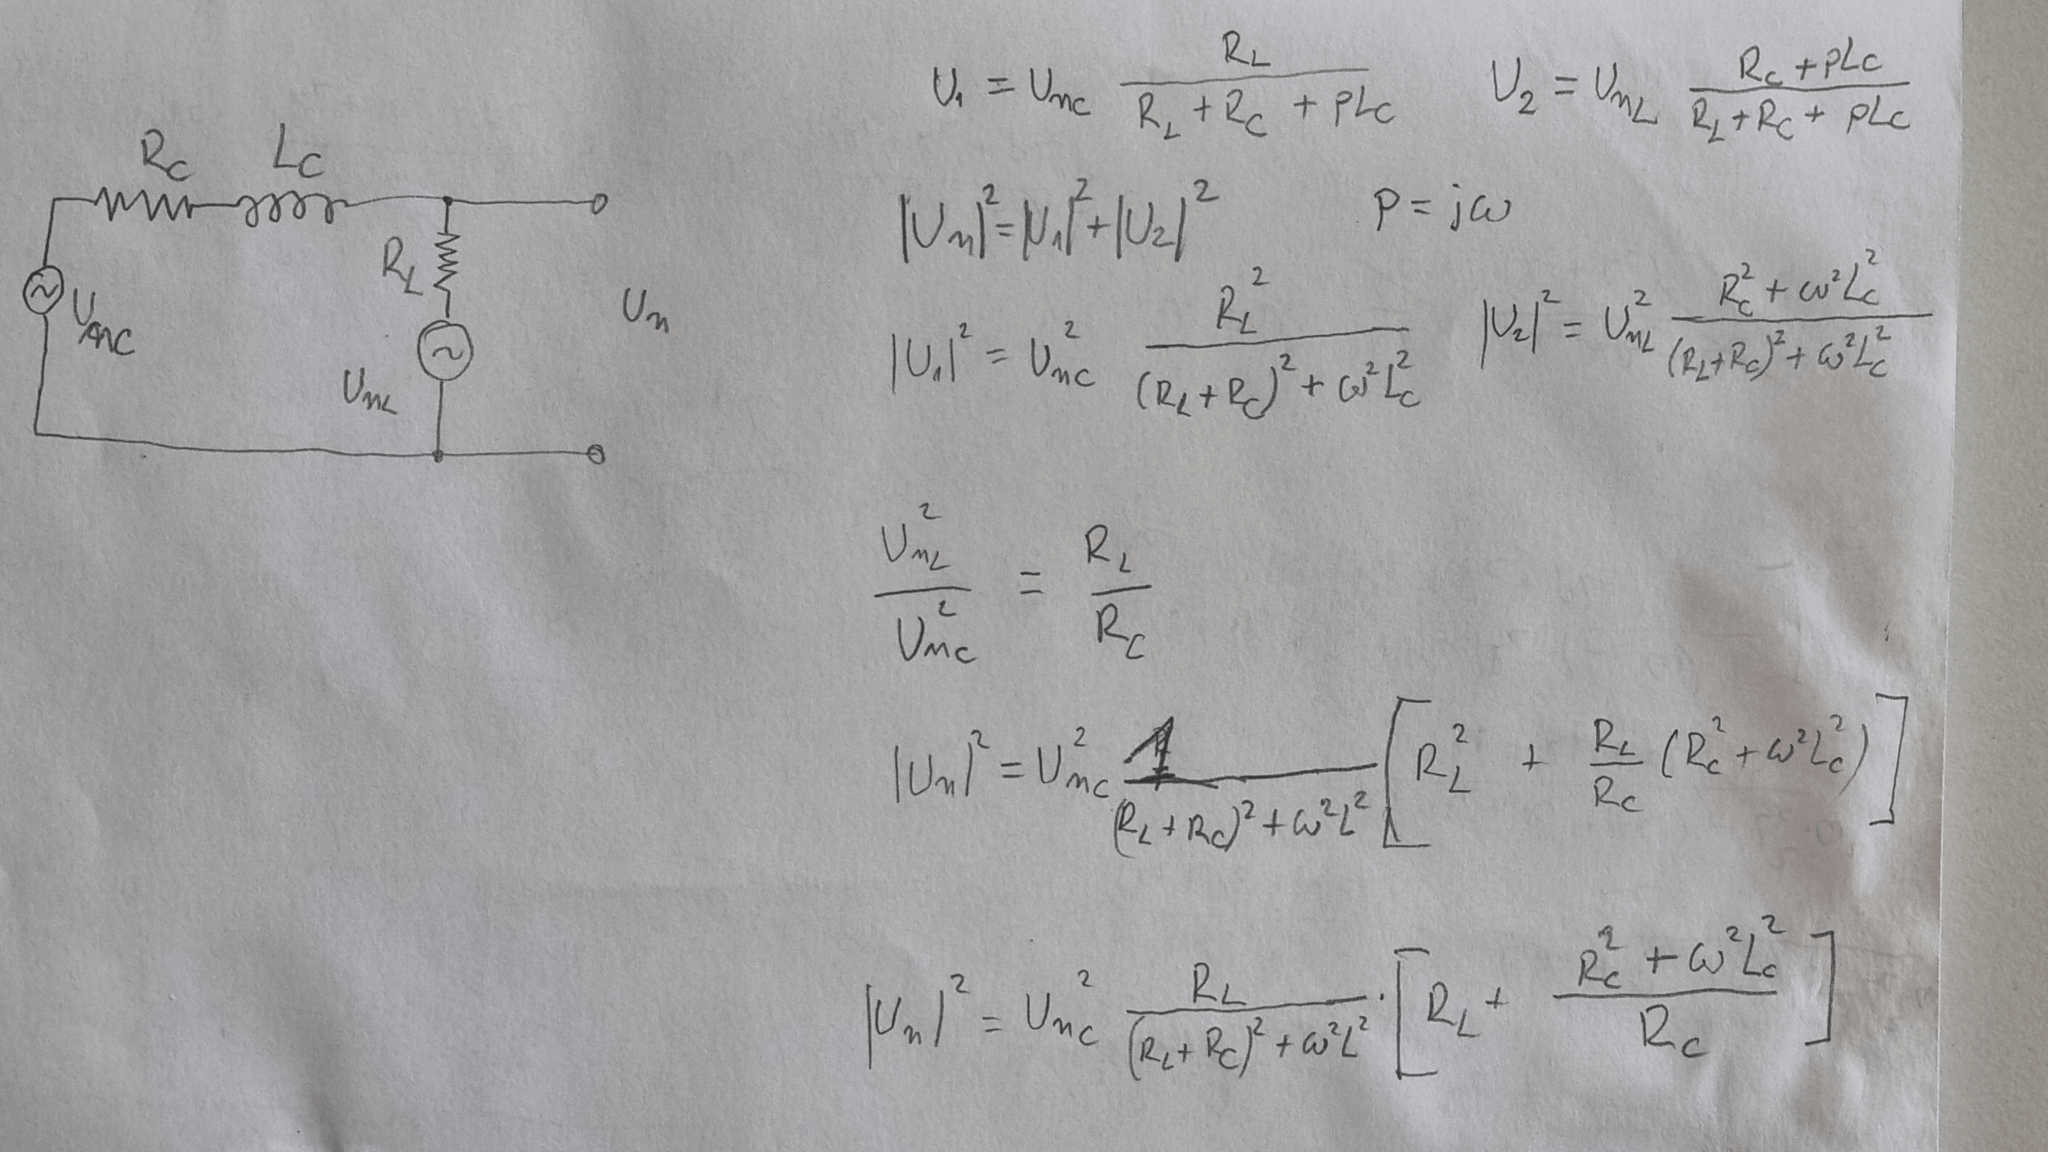 R_C L_C
U_nC
R_L
U_nL
U_n
U_1 = U_nC R_L / (R_L + R_C + pL_C) U_2 = U_nL (R_C + pL_C) / (R_L + R_C + pL_C)
|U_n|² = |U_1|² + |U_2|² p = jω
|U_1|² = U_nC² R_L² / ((R_L + R_C)² + ω²L_C²) |U_2|² = U_nL² (R_C² + ω²L_C²) / ((R_L + R_C)² + ω²L_C²)
U_nL² / U_nC² = R_L / R_C
|U_n|² = U_nC² 1 / ((R_L + R_C)² + ω²L²) [R_L² + R_L / R_C (R_C² + ω²L_C²)]
|U_n|² = U_nC² R_L / ((R_L + R_C)² + ω²L²) · [R_L + (R_C² + ω²L_C²) / R_C]